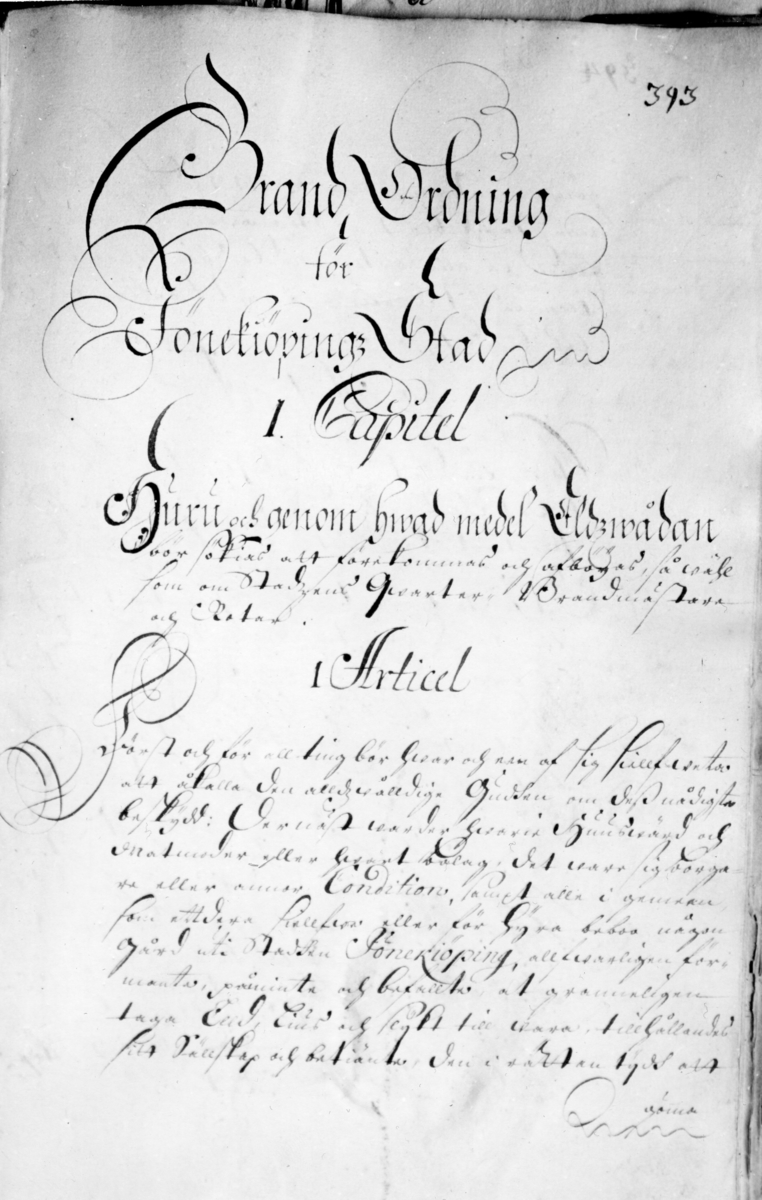 393
Brand Ordning
för
Jönekiöpingz Stad
1. Capitel
Huru och genom hwad medel Eldzwådan
bör sökias att förekommas och afböyas, så wähl
som om Stadzens Qwarter, Brandmästare
och Rotar.
1 Articel
Först och för all ting bör hwar och een af sig sielf weta
att åkalla den alldzwålldige Gudhen om dess nådigste
beskydd: Dernäst warder hwarie Huuswärd och
Matmoder eller hwart bolag, det ware sig borga-
re eller annor Condition, sampt alle i gemeen,
som ettdera sielfwe eller för hyra beboo någon
gård uti Staden Jönekiöping, allfwarligen för-
mante, påminte och befallte, at granneligen
taga Elld, Lius och slykt till wara, tillhållandes
sitt Sällskap och betiänte, den i rättan tydh att
gömma